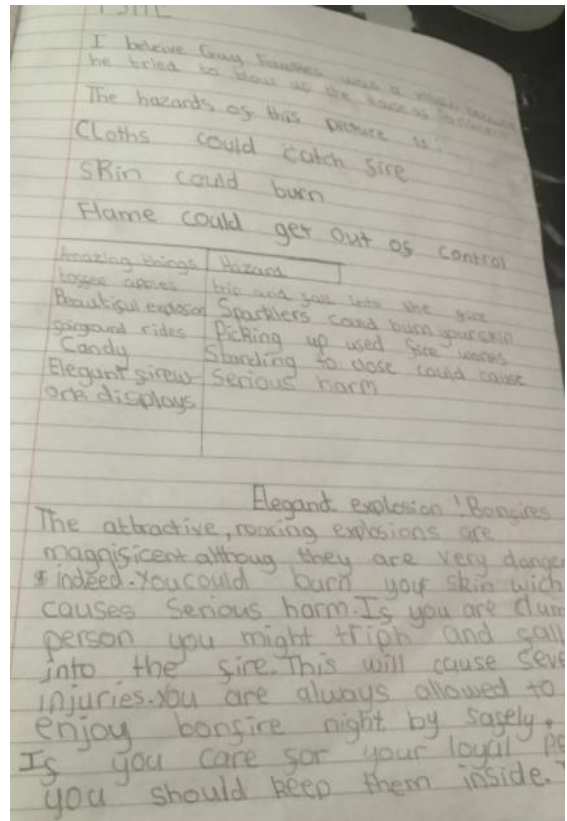 I beleive Guy Fawkes was a because
he tried to blow up the House of
The hazards of this picture is:
Cloths could catch fire
Skin could burn
Flame could get out of control
Amazing things Hazard
toffee apples trip and fall into the fire
Beautiful explosion Sparklers could burn your skin
fairground rides Picking up used fire works
Candy Standing to close could cause
Elegant firew- Serious harm
ork displays
Elegant explosion! Bonfires
The attractive, roaring explosions are
magnificent althoug they are very danger
indeed. You could burn your skin wich
causes Serious harm. If you are clum
person you might triph and fall
into the fire. This will cause seve
injuries. You are always allowed to
enjoy bonfire night by safely.
If you care for your loyal pe
you should keep them inside.